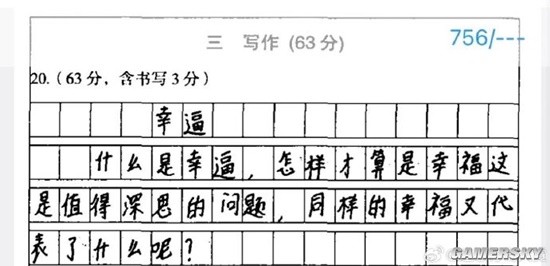 三 写作 (63分)
756/---
20.(63分，含书写3分)
幸逼
什么是幸逼，怎样才算是幸福这
是值得深思的问题，同样的幸福又代
表了什么呢？
GAMERSKY